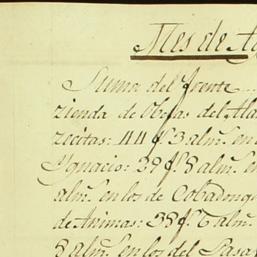 Mes de Ag
Suma del frente
zienda de Obejas del Ala
zecitas: 44 f. 3 alm. en
Ygnacio: 29 f. 8 alm. en
alm. en los de Cobadong
de Animas: 38 f. 6 alm.
8 alm. en los del Lasa